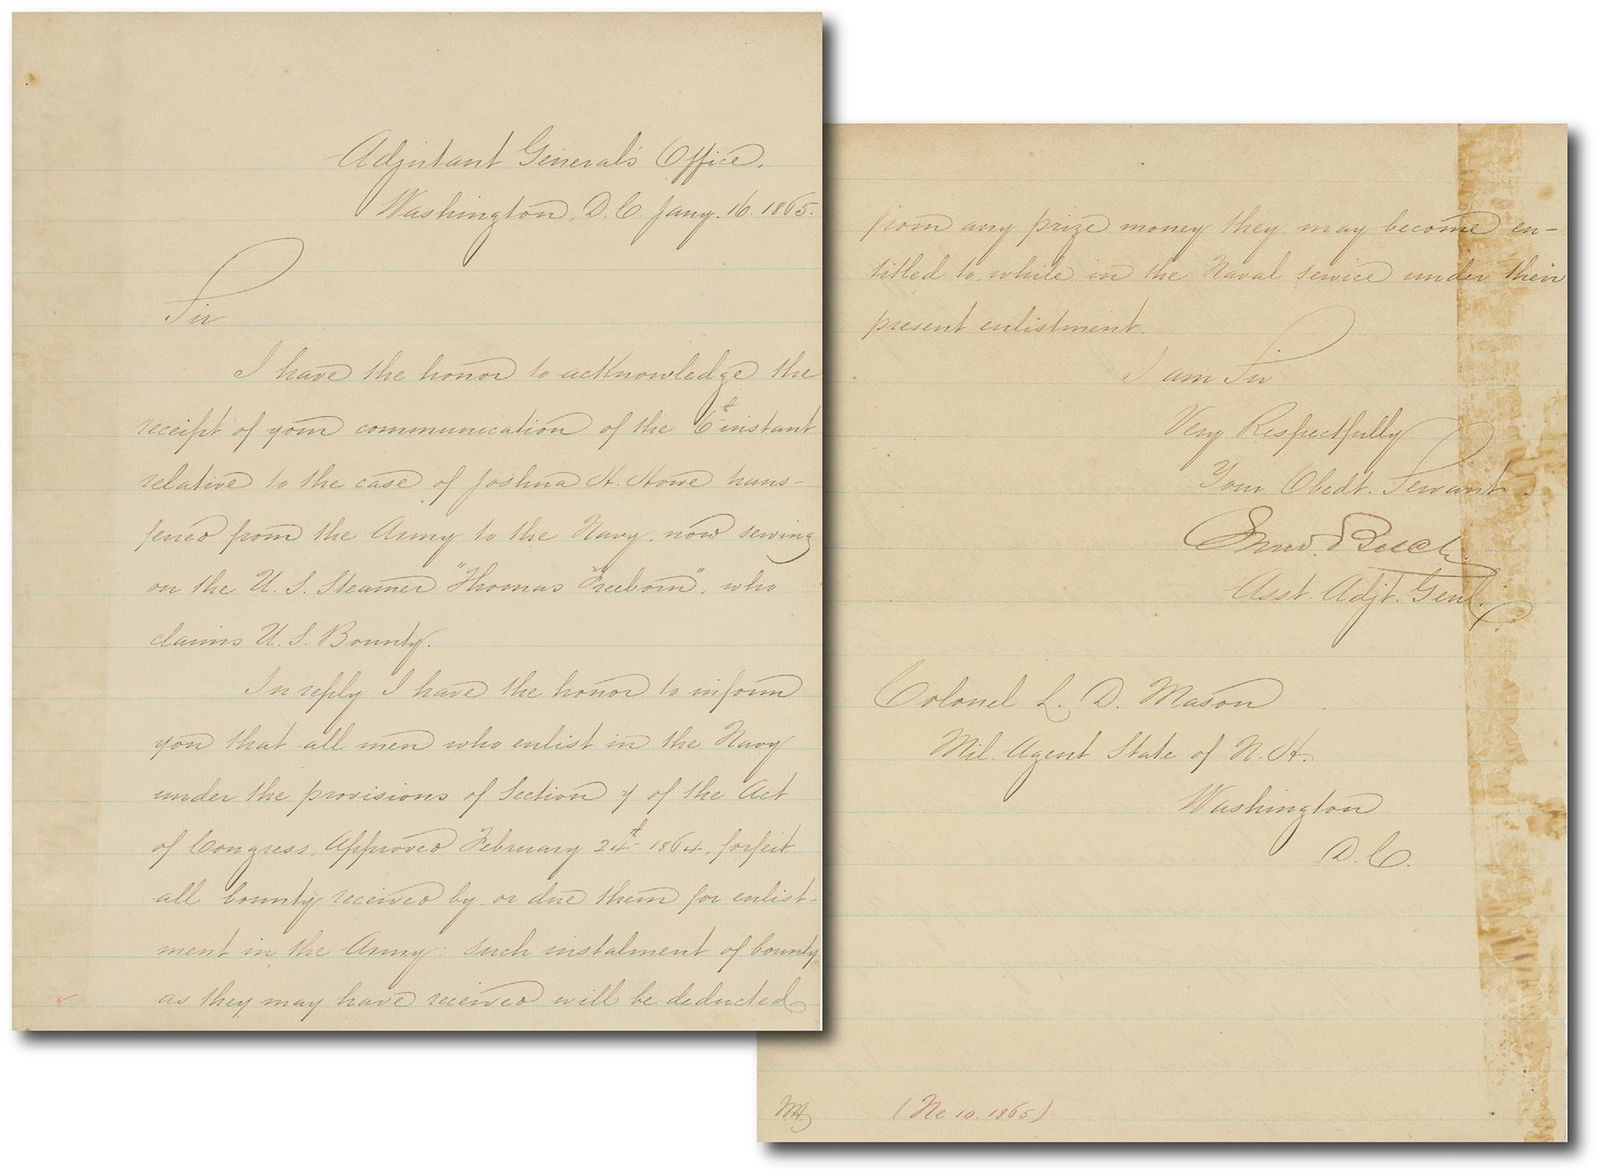 Adjutant General's Office,
Washington, D.C. Jany. 16. 1865.
Sir
I have the honor to acknowledge the
receipt of your communication of the 6th instant
relative to the case of Joshua H. Howe trans-
fered from the Army to the Navy, now serving
on the U. S. Steamer "Thomas Freeborn", who
claims U. S. Bounty.
In reply I have the honor to inform
you that all men who enlist in the Navy
under the provisions of Section 9 of the Act
of Congress, Approved February 24th 1864, forfeit
all bounty received by or due them for enlist-
ment in the Army: such instalment of bounty
as they may have received will be deducted
from any prize money they may become en-
titled to while in the Naval service under their
present enlistment.
I am Sir
Very Respectfully
Your Obedt. Servant
Asst. Adjt. Genl.
Colonel L. D. Mason
Mil. Agent State of N. H.
Washington
D. C.
1865)